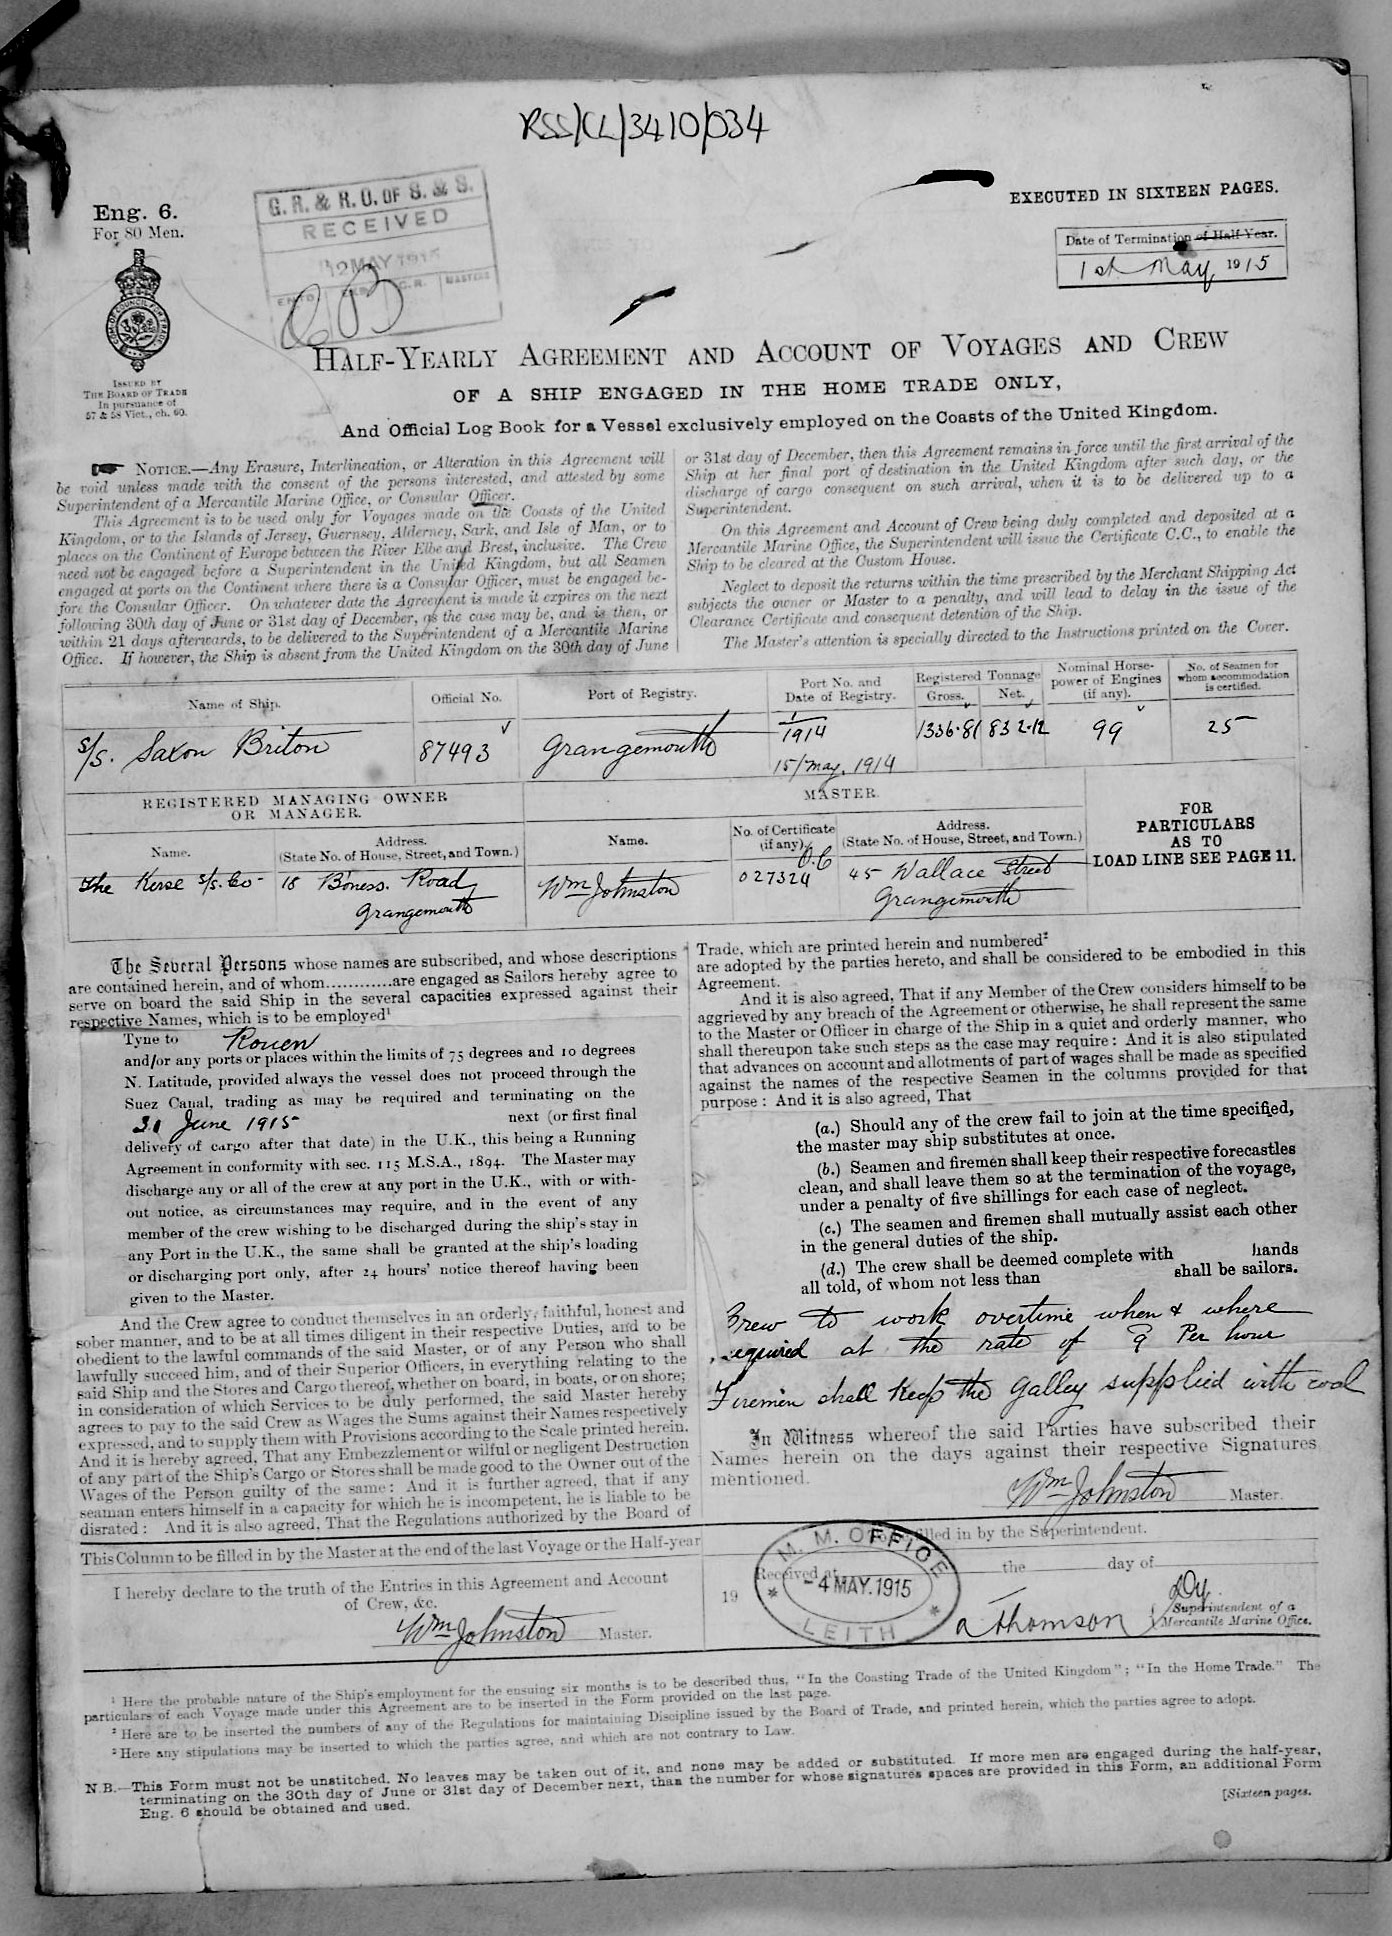 RSS/CL/3410/034
Eng. 6.
For 80 Men.
G. R. & R. O. OF S. & S.
RECEIVED
12 MAY 1915
C.R.
MASTERS
EXECUTED IN SIXTEEN PAGES.
Date of Termination of Half-Year.
1st May 1915
ISSUED BY
THE BOARD OF TRADE
In pursuance of
57 & 58 Vict., ch. 60.
HALF-YEARLY AGREEMENT AND ACCOUNT OF VOYAGES AND CREW
OF A SHIP ENGAGED IN THE HOME TRADE ONLY,
And Official Log Book for a Vessel exclusively employed on the Coasts of the United Kingdom.
NOTICE.—Any Erasure, Interlineation, or Alteration in this Agreement will
be void unless made with the consent of the persons interested, and attested by some
Superintendent of a Mercantile Marine Office, or Consular Officer.
This Agreement is to be used only for Voyages made on the Coasts of the United
Kingdom, or to the Islands of Jersey, Guernsey, Alderney, Sark, and Isle of Man, or to
places on the Continent of Europe between the River Elbe and Brest, inclusive. The Crew
need not be engaged before a Superintendent in the United Kingdom, but all Seamen
engaged at ports on the Continent where there is a Consular Officer, must be engaged be-
fore the Consular Officer. On whatever date the Agreement is made it expires on the next
following 30th day of June or 31st day of December, as the case may be, and is then, or
within 21 days afterwards, to be delivered to the Superintendent of a Mercantile Marine
Office. If however, the Ship is absent from the United Kingdom on the 30th day of June
or 31st day of December, then this Agreement remains in force until the first arrival of the
Ship at her final port of destination in the United Kingdom after such day, or the
discharge of cargo consequent on such arrival, when it is to be delivered up to a
Superintendent.
On this Agreement and Account of Crew being duly completed and deposited at a
Mercantile Marine Office, the Superintendent will issue the Certificate C.C., to enable the
Ship to be cleared at the Custom House.
Neglect to deposit the returns within the time prescribed by the Merchant Shipping Act
subjects the owner or Master to a penalty, and will lead to delay in the issue of the
Clearance Certificate and consequent detention of the Ship.
The Master's attention is specially directed to the Instructions printed on the Cover.
Name of Ship. Official No. Port of Registry. Port No. and Date of Registry. Registered Tonnage Gross. Net. Nominal Horse-power of Engines (if any). No. of Seamen for whom accommodation is certified.
S/S. Saxon Briton 87493 Grangemouth 1/1914 15/May. 1914 1336.81 832.12 99 25
REGISTERED MANAGING OWNER
OR MANAGER.
MASTER.
FOR
PARTICULARS
AS TO
LOAD LINE SEE PAGE 11.
Name. Address. (State No. of House, Street, and Town.) Name. No. of Certificate (if any). Address. (State No. of House, Street, and Town.)
The Kerse S/S. Co 18 Bo'ness. Road Grangemouth Wm Johnston O.C 027324 45 Wallace Street Grangemouth
The Several Persons whose names are subscribed, and whose descriptions
are contained herein, and of whom............are engaged as Sailors hereby agree to
serve on board the said Ship in the several capacities expressed against their
respective Names, which is to be employed¹
Tyne to Rouen
and/or any ports or places within the limits of 75 degrees and 10 degrees
N. Latitude, provided always the vessel does not proceed through the
Suez Canal, trading as may be required and terminating on the
30 June 1915 next (or first final
delivery of cargo after that date) in the U.K., this being a Running
Agreement in conformity with sec. 115 M.S.A., 1894. The Master may
discharge any or all of the crew at any port in the U.K., with or with-
out notice, as circumstances may require, and in the event of any
member of the crew wishing to be discharged during the ship's stay in
any Port in the U.K., the same shall be granted at the ship's loading
or discharging port only, after 24 hours' notice thereof having been
given to the Master.
And the Crew agree to conduct themselves in an orderly, faithful, honest and
sober manner, and to be at all times diligent in their respective Duties, and to be
obedient to the lawful commands of the said Master, or of any Person who shall
lawfully succeed him, and of their Superior Officers, in everything relating to the
said Ship and the Stores and Cargo thereof, whether on board, in boats, or on shore;
in consideration of which Services to be duly performed, the said Master hereby
agrees to pay to the said Crew as Wages the Sums against their Names respectively
expressed, and to supply them with Provisions according to the Scale printed herein.
And it is hereby agreed, That any Embezzlement or wilful or negligent Destruction
of any part of the Ship's Cargo or Stores shall be made good to the Owner out of the
Wages of the Person guilty of the same: And it is further agreed, that if any
seaman enters himself in a capacity for which he is incompetent, he is liable to be
disrated: And it is also agreed, That the Regulations authorized by the Board of
Trade, which are printed herein and numbered²
are adopted by the parties hereto, and shall be considered to be embodied in this
Agreement.
And it is also agreed, That if any Member of the Crew considers himself to be
aggrieved by any breach of the Agreement or otherwise, he shall represent the same
to the Master or Officer in charge of the Ship in a quiet and orderly manner, who
shall thereupon take such steps as the case may require: And it is also stipulated
that advances on account and allotments of part of wages shall be made as specified
against the names of the respective Seamen in the columns provided for that
purpose: And it is also agreed, That
(a.) Should any of the crew fail to join at the time specified,
the master may ship substitutes at once.
(b.) Seamen and firemen shall keep their respective forecastles
clean, and shall leave them so at the termination of the voyage,
under a penalty of five shillings for each case of neglect.
(c.) The seamen and firemen shall mutually assist each other
in the general duties of the ship.
(d.) The crew shall be deemed complete with hands
all told, of whom not less than shall be sailors.
Crew to work overtime when & where
required at the rate of 9 Per hour
Firemen shall keep the Galley supplied with coal
In Witness whereof the said Parties have subscribed their
Names herein on the days against their respective Signatures
mentioned.
Wm Johnston Master.
This Column to be filled in by the Master at the end of the last Voyage or the Half-year
I hereby declare to the truth of the Entries in this Agreement and Account
of Crew, &c.
Wm Johnston Master.
filled in by the Superintendent.
Received at the day of
19
M. M. OFFICE
- 4 MAY. 1915
LEITH
A Thomson Dy.
Superintendent of a
Mercantile Marine Office.
¹ Here the probable nature of the Ship's employment for the ensuing six months is to be described thus, "In the Coasting Trade of the United Kingdom"; "In the Home Trade." The
particulars of each Voyage made under this Agreement are to be inserted in the Form provided on the last page.
² Here are to be inserted the numbers of any of the Regulations for maintaining Discipline issued by the Board of Trade, and printed herein, which the parties agree to adopt.
³ Here any stipulations may be inserted to which the parties agree, and which are not contrary to Law.
N.B.—This Form must not be unstitched. No leaves may be taken out of it, and none may be added or substituted. If more men are engaged during the half-year,
terminating on the 30th day of June or 31st day of December next, than the number for whose signatures spaces are provided in this Form, an additional Form
Eng. 6 should be obtained and used.
[Sixteen pages.